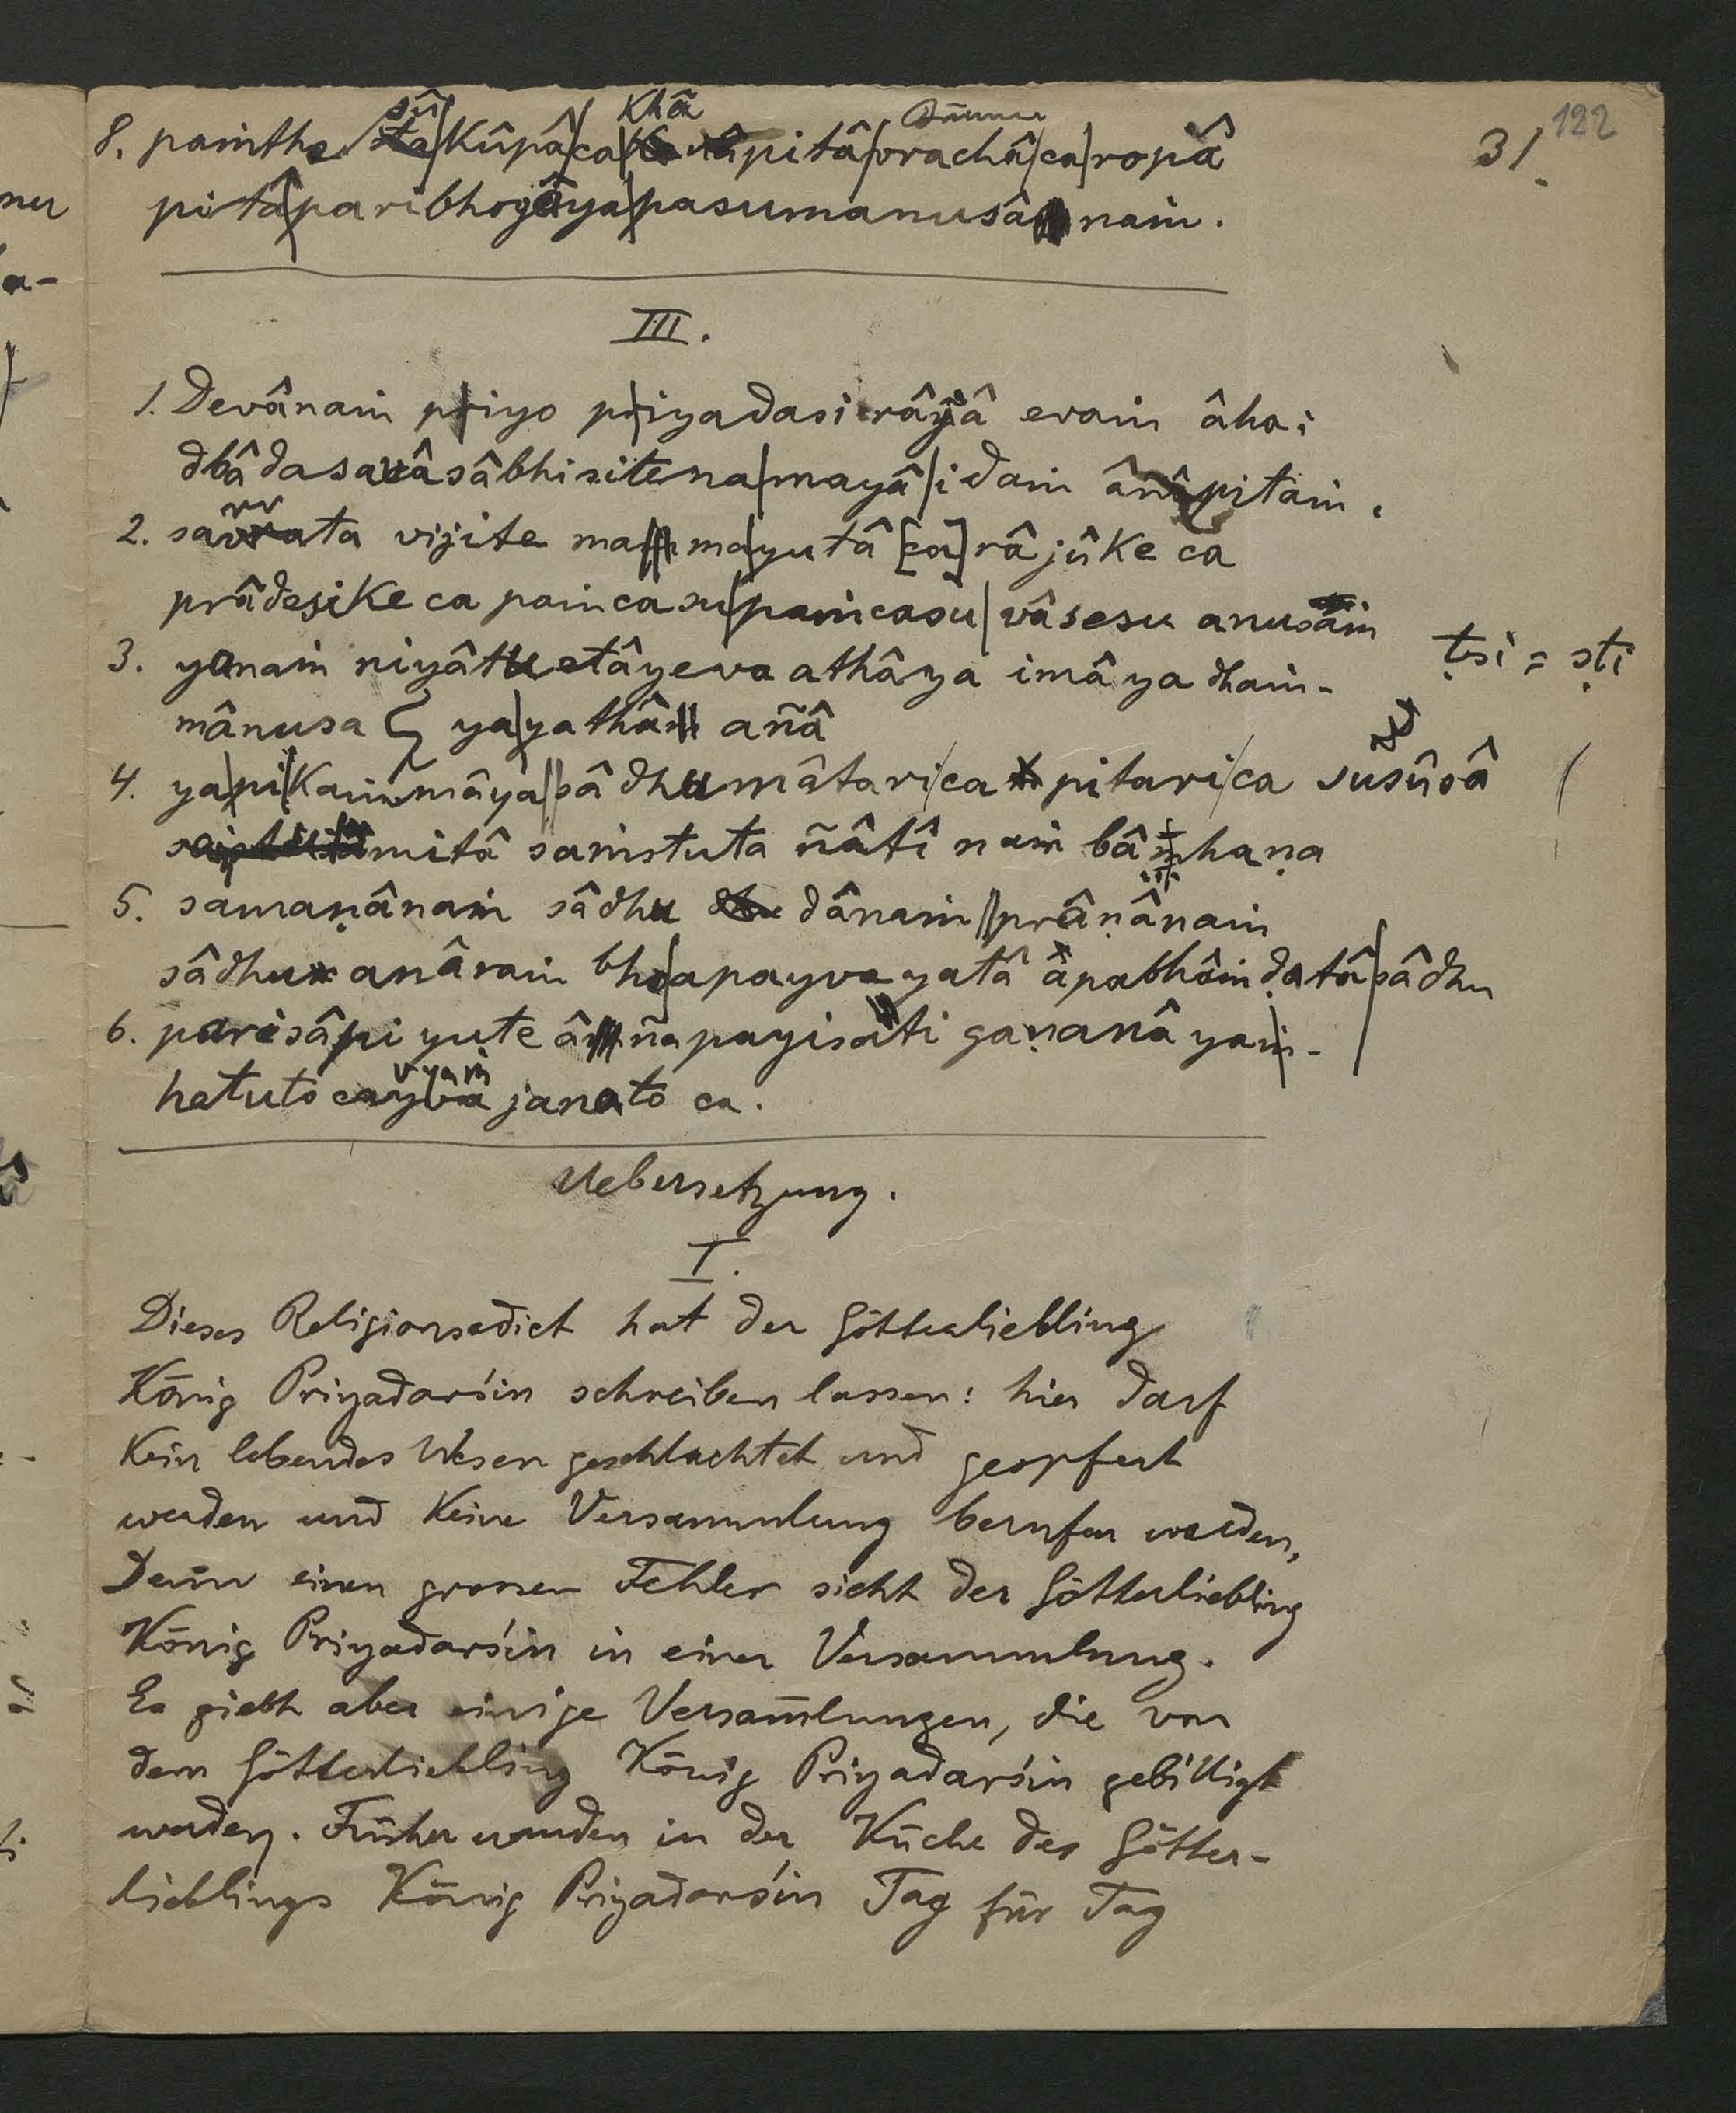 122
31.
Bäume
8. paṁthe sû|kûpâ|ca|khâpitâ|vrachâ|ca|ropâ
pitâ|paribhogâya|pasumanusânaṁ.
III.
1. Devânaṁ priyo priyadasi râjâ evaṁ âha:
dbâdasavâsâbhisitena|mayâ|idaṁ âñâpitaṁ.
2. savrata vijite mama|yutâ [ca] râjûke ca
prâdesike ca paṁcasu|paṁcasu|vâsesu anusaṁ
3. yanaṁ niyâtu etâyeva athâya imâya dhaṁ-
ṭsi = sṭi
mânusa ya|yathâ añâ
4. ya|pi|kaṁmâya||sâdhu mâtari|ca pitari|ca susûsâ
mitâ saṁstuta ñâtînaṁ bâmhaṇa
5. samaṇânaṁ sâdhu dânaṁ||prâṇânaṁ
sâdhu anâraṁbho|apayvayatâ apabhâṁḍatâ|sâdhu
6. parisâpi yute âñapayisati gaṇanâyaṁ-
hetuto ca vyaṁjanato ca.
Uebersetzung.
I.
Dieses Religionsedict hat der Götterliebling
König Priyadarśin schreiben lassen: hier darf
kein lebendes Wesen geschlachtet und geopfert
werden und keine Versammlung berufen werden,
Denn einen grossen Fehler sieht der Götterliebling
König Priyadarśin in einer Versammlung.
Es giebt aber einige Versam̅lungen, die von
dem Götterliebling König Priyadarśin gebilligt
werden. Früher wurden in der Küche des Götter-
lieblings König Priyadarśin Tag für Tag